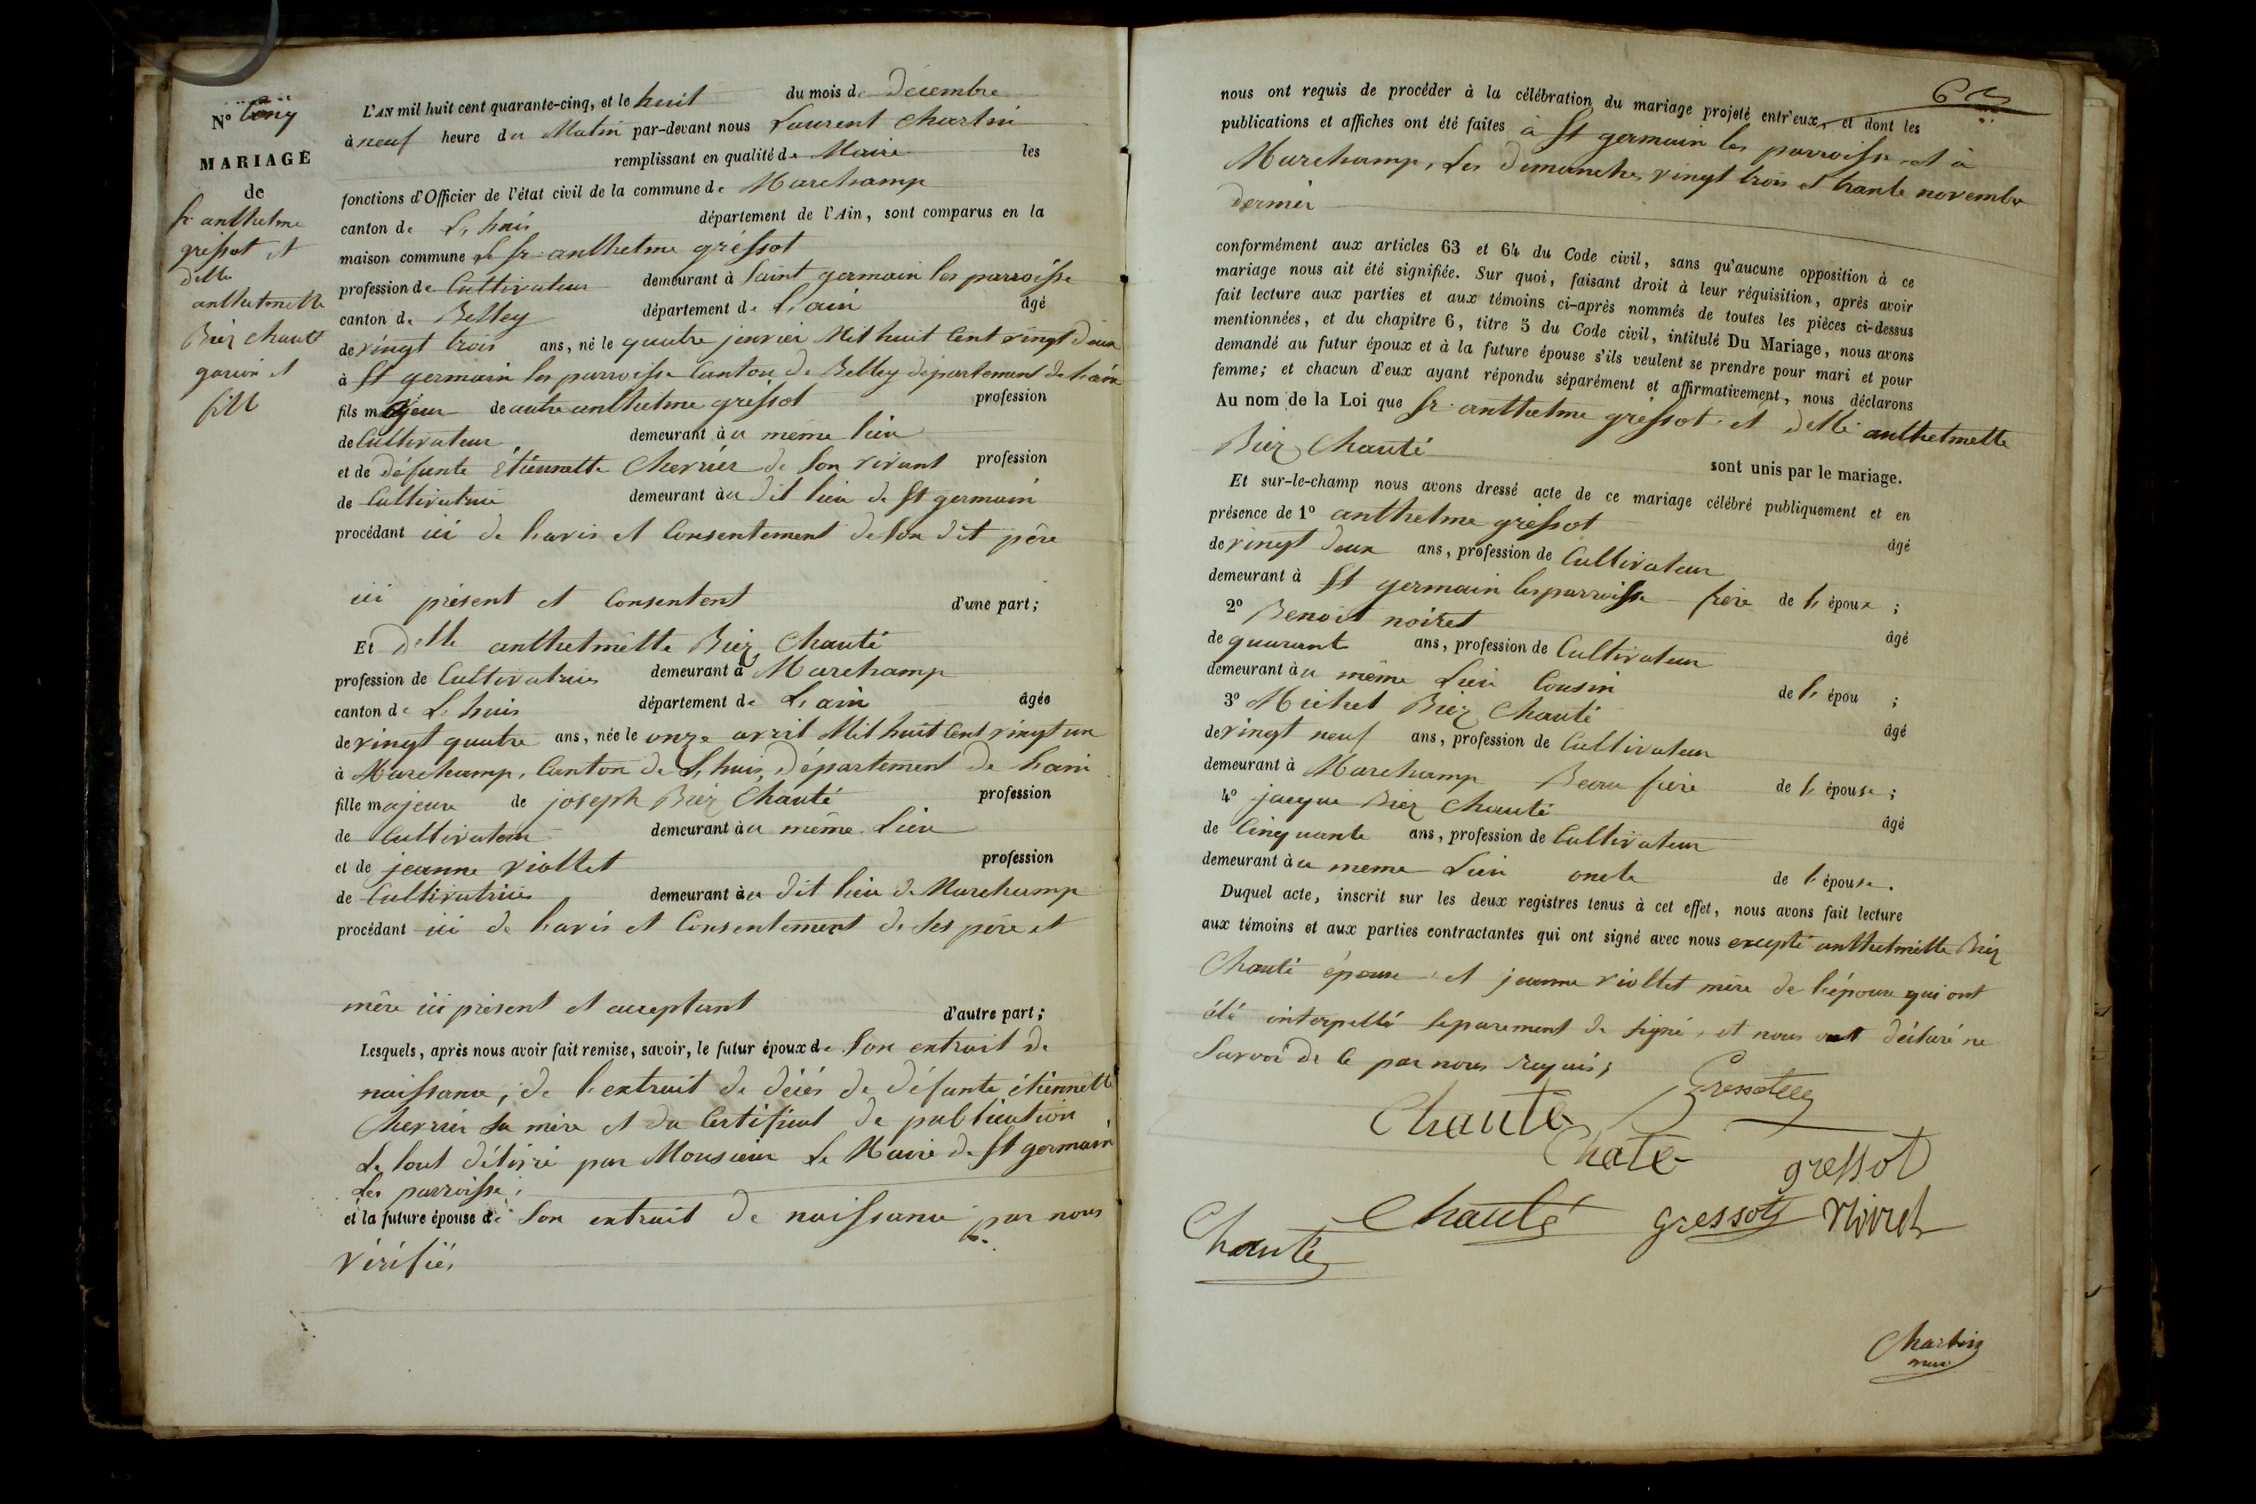 N° Cinq
MARIAGE
de
Sr anthelme
gressot et
delle
anthelmette
Biez Chanté
garçon et
fille
L'AN mil huit cent quarante-cinq, et le huit du mois de décembre
à neuf heure du Matin par-devant nous Laurent Charlin
remplissant en qualité de Maire les
fonctions d'Officier de l'état civil de la commune de Marchamp
canton de L, huis département de l'Ain, sont comparus en la
maison commune le Sr anthelme gréssot
profession de Cultivateur demeurant à Saint germain les parroisse
canton de Belley département de L, ain âgé
de vingt trois ans, né le quatre janvier Mil huit Cent vingt deux
à St germain les parroisse Canton de Belley département de l'ain
fils majeur de autre anthelme gressot profession
de Cultivateur demeurant au meme lieu
et de défunte étiennette Cherrier de Son vivant profession
de Cultivatrice demeurant au dit lieu de St germain
procédant ici de l'avis et Consentement de Son dit père
ici présent et Consentent d'une part;
Et delle anthelmette Biez Chanté
profession de Cultivatrice demeurant à Marchamp
canton de L, huis département de L, ain âgée
de vingt quatre ans, née le onze avril Mil huit Cent vingt un
à Marchamp, Canton de L, huis, département de l'ain
fille majeure de joseph Biez Chanté profession
de Cultivateur demeurant au même Lieu
et de jeanne viollet profession
de Cultivatrice demeurant au dit lieu de Marchamp
procédant ici de l'avis et Consentement de Ses père et
mère ici présent et acceptant d'autre part;
Lesquels, après nous avoir fait remise, savoir, le futur époux de Son extrait de
naissance, de l'extrait de décés de défunte étiennette
Cherrier Sa mère et du Certificat de publication
Le tout délivré par Monsieur Le Maire de St germain
Les parroisse;
et la future épouse de Son extrait de naissance par nous
vérifiés
nous ont requis de procéder à la célébration du mariage projeté entr'eux, et dont les
publications et affiches ont été faites à St germain les parroisse et à
Marchamp, Les dimanches vingt trois et trante novembre
dernier
conformément aux articles 63 et 64 du Code civil, sans qu'aucune opposition à ce
mariage nous ait été signifiée. Sur quoi, faisant droit à leur réquisition, après avoir
fait lecture aux parties et aux témoins ci-après nommés de toutes les pièces ci-dessus
mentionnées, et du chapitre 6, titre 5 du Code civil, intitulé Du Mariage, nous avons
demandé au futur époux et à la future épouse s'ils veulent se prendre pour mari et pour
femme; et chacun d'eux ayant répondu séparément et affirmativement, nous déclarons
Au nom de la Loi que Sr anthelme gressot et delle anthelmette
Biez Chanté sont unis par le mariage.
Et sur-le-champ nous avons dressé acte de ce mariage célébré publiquement et en
présence de 1° anthelme gressot âgé
de vingt deux ans, profession de Cultivateur
demeurant à St germain les parroisse frère de l, époux ;
2° Benoit noiret âgé
de quarant ans, profession de Cultivateur
demeurant au même Lieu Cousin de l, épou ;
3° Michel Biez Chanté âgé
de vingt neuf ans, profession de Cultivateur
demeurant à Marchamp Beau frère de l, épouse ;
4° jacque Biez Chanté âgé
de Cinquante ans, profession de Cultivateur
demeurant au meme Lieu oncle de l'épouse.
Duquel acte, inscrit sur les deux registres tenus à cet effet, nous avons fait lecture
aux témoins et aux parties contractantes qui ont signé avec nous excepté anthelmette Biez
Chanté épouse et jeanne viollet mère de l'épouse qui ont
été interpellé Séparement de signé, et nous ont déclaré ne
Savoir de ce par nous requis;
Chanté Gressot
Chate gressot
Chanté Chanté gressot Noiret
Charlin
maire